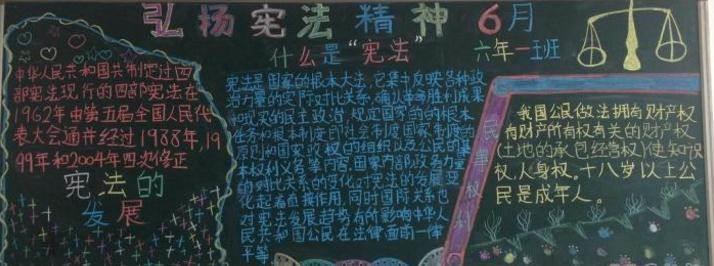 弘扬宪法精神 6月
什么是“宪法” 六年一班
中华人民共和国共制定过四
部宪法现行的四部宪法在
1962年由第五届全国人民代
表大会通并经过1988年,19
99年和2004年四次修正
宪法的
发展
宪法是国家的根本大法,它集中反映各种政
治力量的实际对比关系,确认革命胜利成果
和现实的民主政治,规定国家的的根本
任务和根本制度即社会制度国家制度的
原则和国家政权的组织以及公民的基
本权利义务等内容,国家内部政务力量
的对比关系的变化对宪法的发展变
化起着直接作用,同时国际关系也
对宪法发展趋势有所影响中华人
民共和国公民在法律面前一律
平等
民事权利
我国公民做法拥有财产权
有财产所有权有关的财产权
(土地的承包经营权)使知识
权,人身权,十八岁以上公
民是成年人。